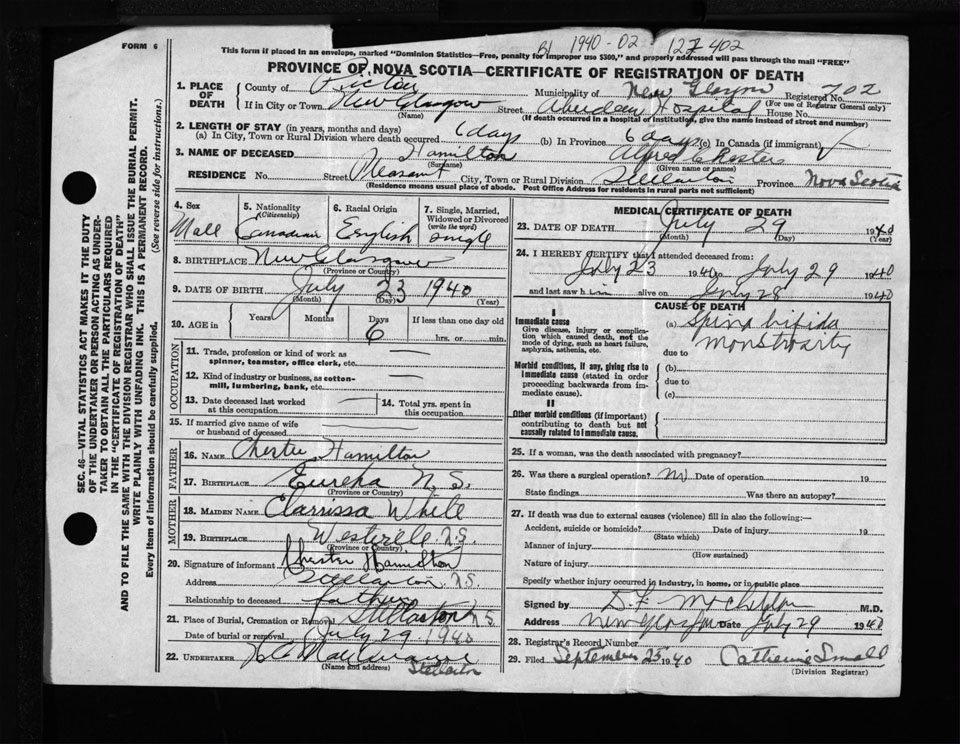 FORM 6
This form if placed in an envelope, marked "Dominion Statistics—Free, penalty for improper use $300," and properly addressed will pass through the mail "FREE"
1940-02- 402
PROVINCE OF NOVA SCOTIA—CERTIFICATE OF REGISTRATION OF DEATH
1. PLACE OF DEATH
County of Pictou Municipality of New Glasgow Registered No. 702
(For use of Registrar General only)
If in City or Town New Glasgow Street Aberdeen Hospital House No.
(Name) (If death occurred in a hospital or institution, give the name instead of street and number)
2. LENGTH OF STAY (in years, months and days)
(a) In City, Town or Rural Division where death occurred 6 days (b) In Province 6 days (c) In Canada (if immigrant)
3. NAME OF DECEASED Hamilton Alfred
(Surname) (Given name or names)
RESIDENCE No. Street Pleasant City, Town or Rural Division Stellarton Province Nova Scotia
(Residence means usual place of abode. Post Office Address for residents in rural parts not sufficient)
4. Sex Male
5. Nationality (Citizenship) Canadian
6. Racial Origin English
7. Single, Married, Widowed or Divorced (write the word) single
8. BIRTHPLACE New Glasgow
(Province or Country)
9. DATE OF BIRTH July 23 1940
(Month) (Day) (Year)
10. AGE in Years Months Days 6 If less than one day old hrs. or min.
OCCUPATION
11. Trade, profession or kind of work as spinner, teamster, office clerk, etc. —
12. Kind of industry or business, as cotton-mill, lumbering, bank, etc. —
13. Date deceased last worked at this occupation —
14. Total yrs. spent in this occupation
15. If married give name of wife or husband of deceased
FATHER
16. NAME Chester Hamilton
17. BIRTHPLACE Eureka N.S.
(Province or Country)
MOTHER
18. MAIDEN NAME Clarrissa White
19. BIRTHPLACE N.S.
(Province or Country)
20. Signature of informant Chester Hamilton
Address Stellarton N.S.
Relationship to deceased father
21. Place of Burial, Cremation or Removal Stellarton N.S.
Date of burial or removal July 29 1940
22. UNDERTAKER
(Name and address) Stellarton
MEDICAL CERTIFICATE OF DEATH
23. DATE OF DEATH July 29 1940
(Month) (Day)
24. I HEREBY CERTIFY that I attended deceased from:
July 23 1940 to July 29 1940
and last saw him alive on July 28 1940
CAUSE OF DEATH
I
Immediate cause
Give disease, injury or complication which caused death, not the mode of dying, such as heart failure, asphyxia, asthenia, etc.
(a) Spina bifida
due to
Morbid conditions, if any, giving rise to immediate cause (stated in order proceeding backwards from immediate cause).
(b)
due to
(c)
II
Other morbid conditions (if important) contributing to death but not causally related to immediate cause.
25. If a woman, was the death associated with pregnancy?
26. Was there a surgical operation? no Date of operation 19
State findings Was there an autopsy?
27. If death was due to external causes (violence) fill in also the following:—
Accident, suicide or homicide? Date of injury 19
(State which)
Manner of injury
(How sustained)
Nature of injury
Specify whether injury occurred in industry, in home, or in public place
Signed by M.D.
Address New Glasgow Date July 29 1940
28. Registrar's Record Number
29. Filed September 25 1940 Catherine Small
(Division Registrar)
SEC. 46—VITAL STATISTICS ACT MAKES IT THE DUTY
OF THE UNDERTAKER OR PERSON ACTING AS UNDER-
TAKER TO OBTAIN ALL THE PARTICULARS REQUIRED
IN THE "CERTIFICATE OF REGISTRATION OF DEATH"
AND TO FILE THE SAME WITH THE DIVISION REGISTRAR WHO SHALL ISSUE THE BURIAL PERMIT.
WRITE PLAINLY WITH UNFADING INK. THIS IS A PERMANENT RECORD.
Every item of information should be carefully supplied. (See reverse side for instructions.)